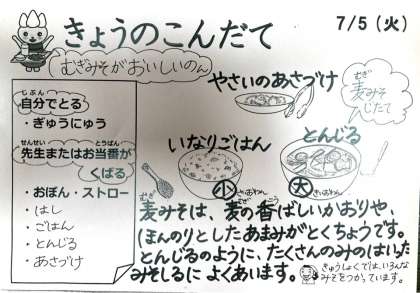 きょうのこんだて
7/5（火）
むぎみそがおいしいのん
自分でとる
・ぎゅうにゅう
先生またはお当番が
くばる
・おぼん・ストロー
・はし
・ごはん
・とんじる
・あさづけ
やさいのあさづけ
麦みそ
じたて
いなりごはん
小
とんじる
大
麦みそは、麦の香ばしいかおりや、
ほんのりとしたあまみがとくちょうです。
とんじるのように、たくさんのみのはいった
みそしるに よくあいます。
きゅうしょくでは、いろんな
みそをつかっています。